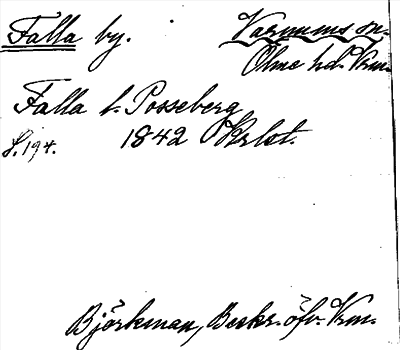 Falla by. Varnums sn.
Ölme hd. Vrm.
Falla l. Posseberg
S. 194. 1842 Vrlst.
Björkman, Beskr. öfv. Vrm.